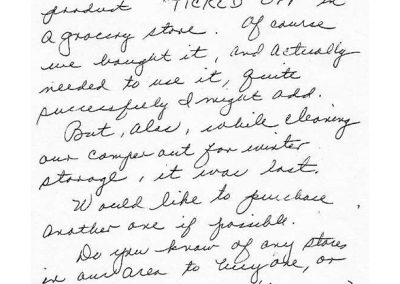 product "TICKED OFF" in
a grocery store. Of course
we bought it, and actually
needed to use it, quite
successfully I might add.
But, alas, while cleaning
our camper out for winter
storage, it was lost.
Would like to purchase
another one if possible.
Do you know of any stores
in our area to buy one, or